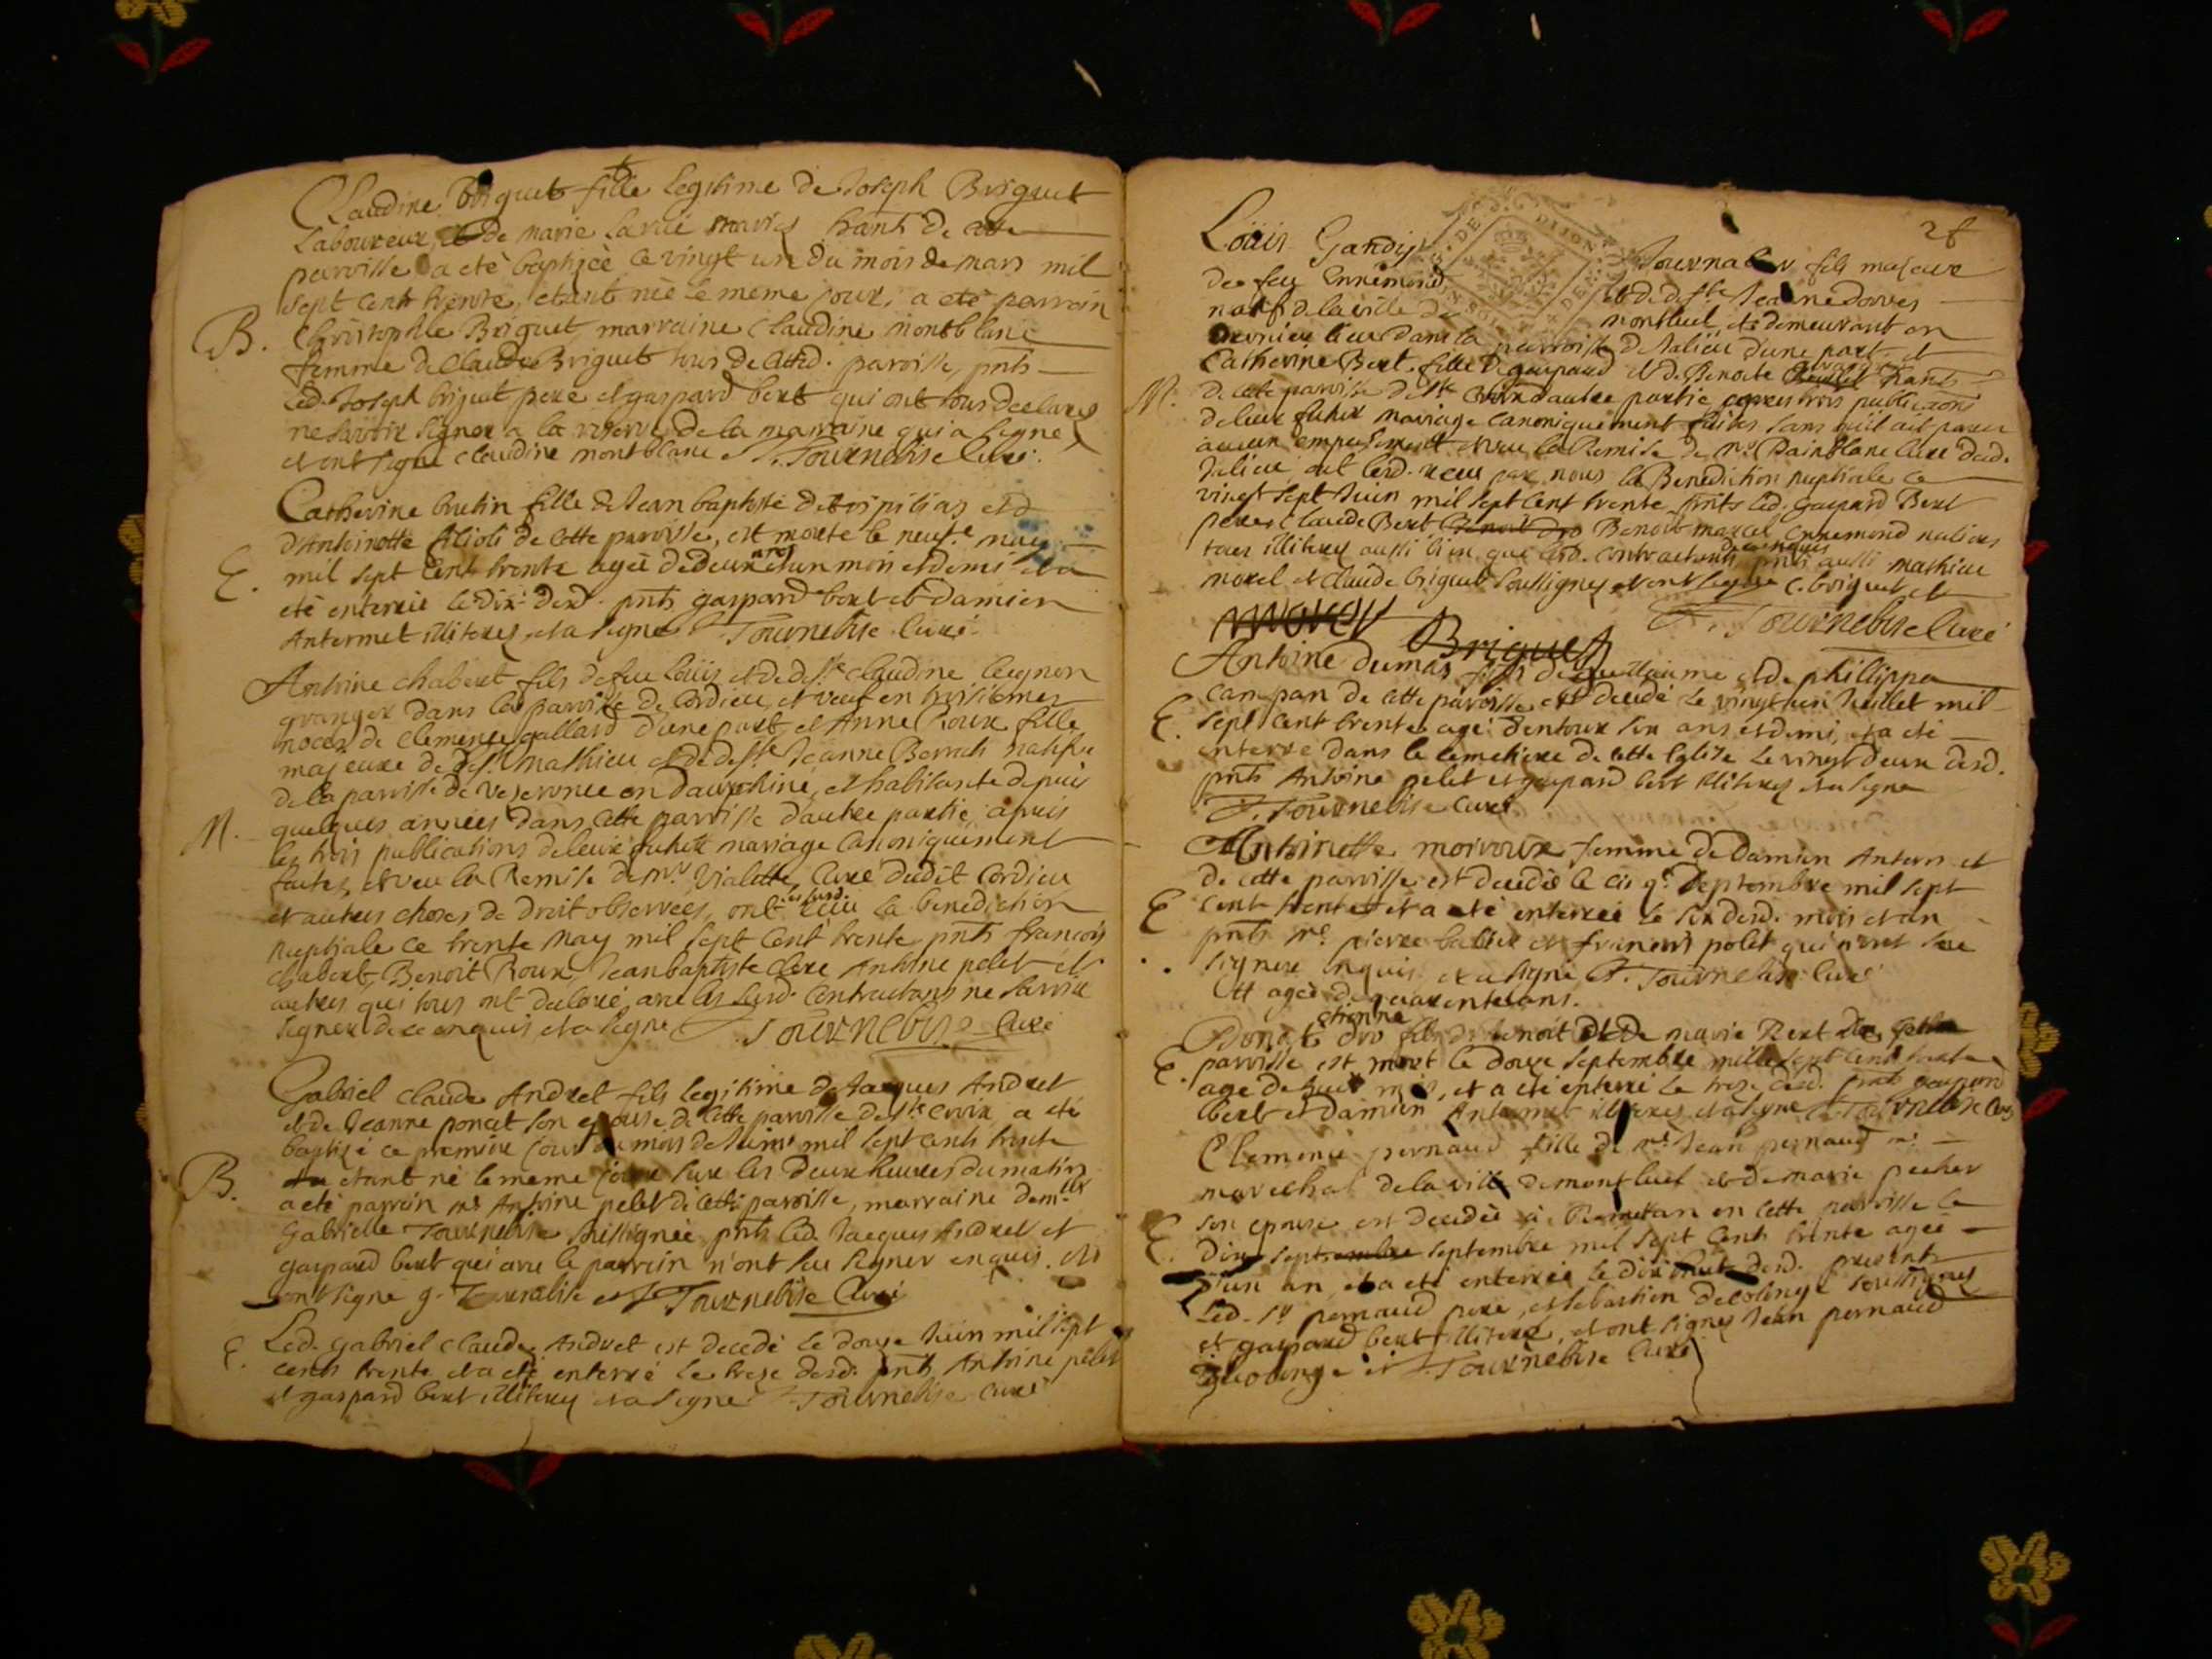 Claudine Briguet fille Legitime de Joseph Briguet
Laboureur, et de marie Larüé mariés hants de cette
parroisse a eté baptizeé ce vingt un du mois de mars mil
sept cent trente, etant neé le meme jour, a eté parrain
B. Christophle Briguet, marraine Claudine montblanc
femme de Claude Briguet tous de cetted. paroisse, pnts
Led. Joseph briguet pere et gaspard bert qui ont tous declarez
ne savoir signer a la reserve de la marraine qui a signé
et ont signé Claudine montblanc et F. Tournebise Curé.
Catherine brutin fille de Jean baptiste et
d'Antoinette filioli de cette parroisse, est morte le neuf.e may
E. mil sept cent trente ageé de deux ans et un moi et demi et a
eté enterreé le dix dud. pnts gaspard bert et Damien
Antermet illiterez et a signé F. Tournebise Curé.
Antoine chabert fils de feu Loüis et de def.te Claudine
granger dans la parroisse de Cordieu, et veuf en troisiemes
noces de Clemence gallard d'une part, et Anne Roux fille
majeure de def.t Mathieu et de def.te Jeanne natifve
de la parroisse de Veseronce en dauphiné, et habitante depuis
M. quelques années dans cette parroisse d'autre partie, apres
les trois publications de leur futur mariage Canoniquement
faites, et veu la Remise de Mr. Vialette, Curé dudit Cordieu
et autres choses de droit observees, ont lesusd. receu la benediction
nuptiale ce trente May mil sept cent trente pnts francois
chabert, Benoit Roux, Jean baptiste Clere Antoine pelet et
autres qui tous ont declaré, avec les susd. Contractans ne savoir
signer de ce enquis et a signé F. Tournebise Curé
Gabriel Claude Andret fils legitime de Jacques Andret
et de Jeanne poncet son epouse de cette parroisse de Ste Croix a eté
baptizé ce premier jour du mois de Juin mil sept cent trente
B. etant né le meme jour sur les deux heures du matin
a eté parrain Me Antoine pelet de cette parroisse, marraine dem.lle
Gabrielle Tournebise soussigneé pnts led. Jacques Andret et
gaspard bert qui avec le parrain n'ont seu signer enquis. et
ont signé g. Tournebise et F. Tournebise Curé
E. Led. gabriel Claude Andret est decedé le douze Juin mil sept
cent trente et a eté enterré le treze dud. pnts Antoine pelet
et gaspard bert illiterez et a signé F. Tournebise Curé
28
Loüis Gandy Journalier fils majeur
de feu Ennemond et de def.te Jeanne
natif de la ville de Montluel et demeurant en
dernier lieu dans la parroisse de d'une part et
Catherine Bert fille de gaspard et de Benoite hants
M. de cette parroisse de Ste Croix d'autre partie apres trois publications
de leur futur mariage canoniquement faites sans qu'il ait paru
aucun empechement et veu la Remise de Mr. Curé dud.
ont lesd. receu par nous la Benediction nuptiale ce
vingt sept Juin mil sept cent trente pnts led. gaspard Bert
pere, Claude Bert Benoit marcel Ennemond
tous illiterez aussi bien que lesd. contractants pnts aussi mathieu
morel et Claude briguet soussignez et ont signé C. briguet et
F. Tournebise Curé
morel
Briguet
Antoine dumas fils de guillaume et de phillippa
campan de cette paroisse est decedé le vingt un Juillet mil
E. sept cent trente agé d'entour six ans et demi, et a eté
enterré dans le cemetiere de cette Eglise le vingt deux dud.
pnts Antoine pelet et gaspard bert illiterez et a signé
F. Tournebise Curé
Antoinette moiroux femme de Damien Anterm et
de cette parroisse est decedeé le cinq. Septembre mil sept
E cent trente et a eté enterreé le six dud. mois et an
pnts Me. pierre et francois pelet qui n'ont seu
signer enquis et a signé F. Tournebise Curé
et ageé de quarente ans.
etienne
dro fils de benoit et de marie Bert de cette
E. parroisse est mort le douze septembre mille sept cent trente
agé de huit mois, et a eté enterré le treze dud. pnts gaspard
bert et Damien Antermet illiterez et a signé F. Tournebise Curé
Clemence pernaud fille de Me. Jean pernaud
marechal de la ville de montluel et de marie pecher
E. son epouse est decedeé à Romatan en cette parroisse le
dix sept septembre mil sept cent trente ageé
d'un an, et a eté enterreé le dix huit dud. presents
Led. Sr pernaud pere, et sebastien Decolonge soussignez
et gaspard bert illiteré, et ont signez Jean pernaud
Decolonge et F. Tournebise Curé